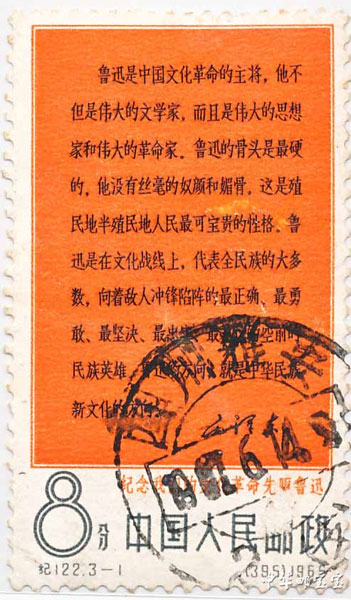 鲁迅是中国文化革命的主将，他不
但是伟大的文学家，而且是伟大的思想
家和伟大的革命家。鲁迅的骨头是最硬
的，他没有丝毫的奴颜和媚骨，这是殖
民地半殖民地人民最可宝贵的性格。鲁
迅是在文化战线上，代表全民族的大多
数，向着敌人冲锋陷阵的最正确、最勇
敢、最坚决、最忠 最 空前的
民族英雄。 方向，就是中华民族
新文化的方向
毛泽东
纪念我们的文化革命先驱鲁迅
8分 中国人民邮政
纪122.3-1 (395)1966